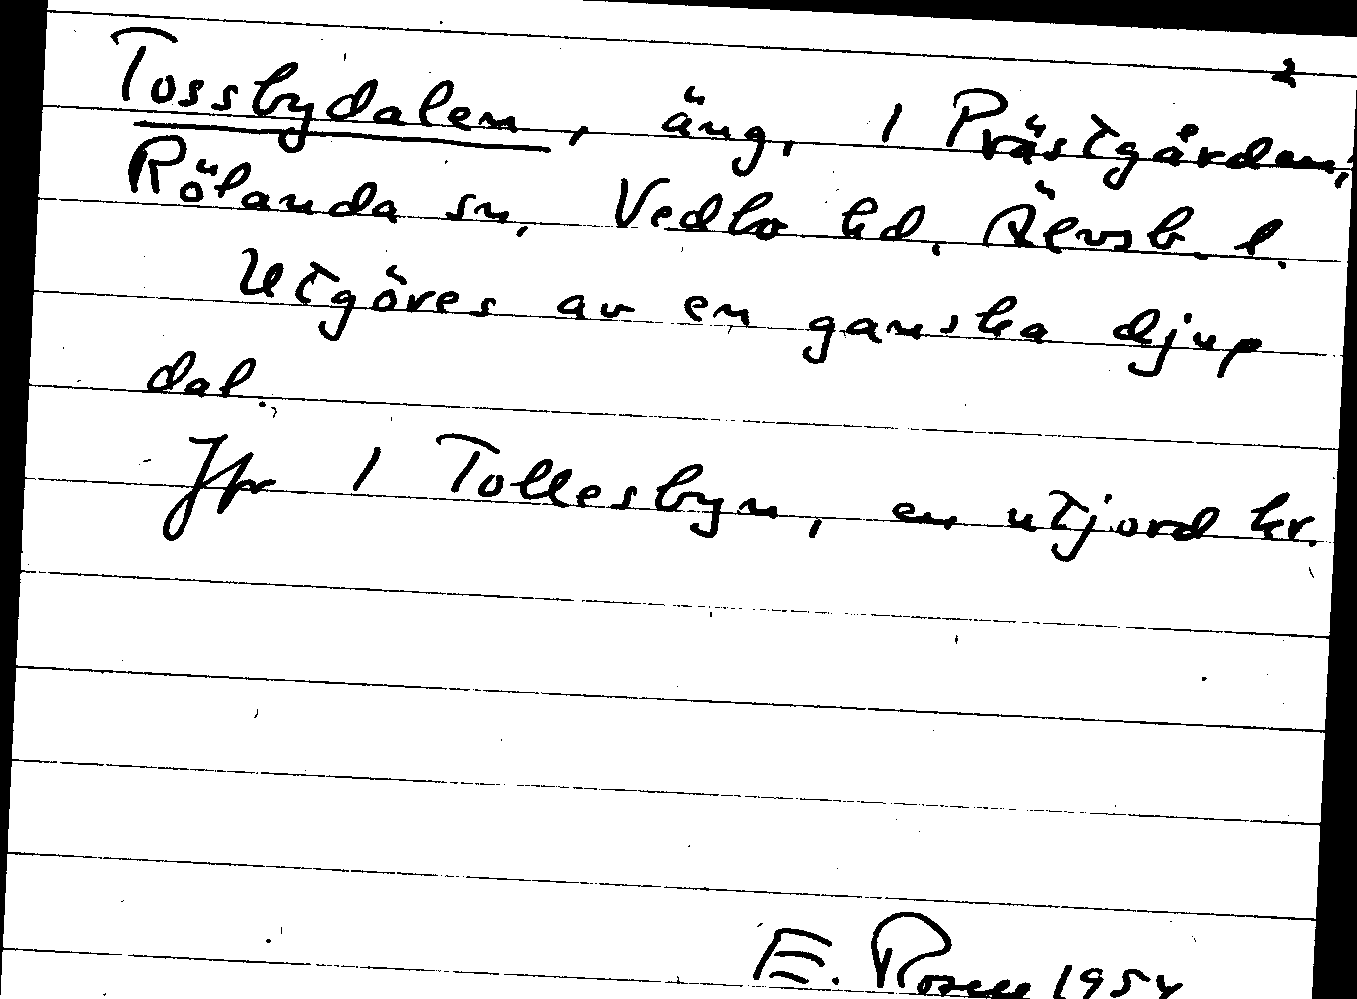 2
Tossbydalen, äng, 1 Prästgården,
Rölanda sn, Vedbo hd. Älvsb. l.
Utgöres av en ganska djup
dal.
Jfr 1 Tollesbyn, en utjord hr.
E. Rosell 1954